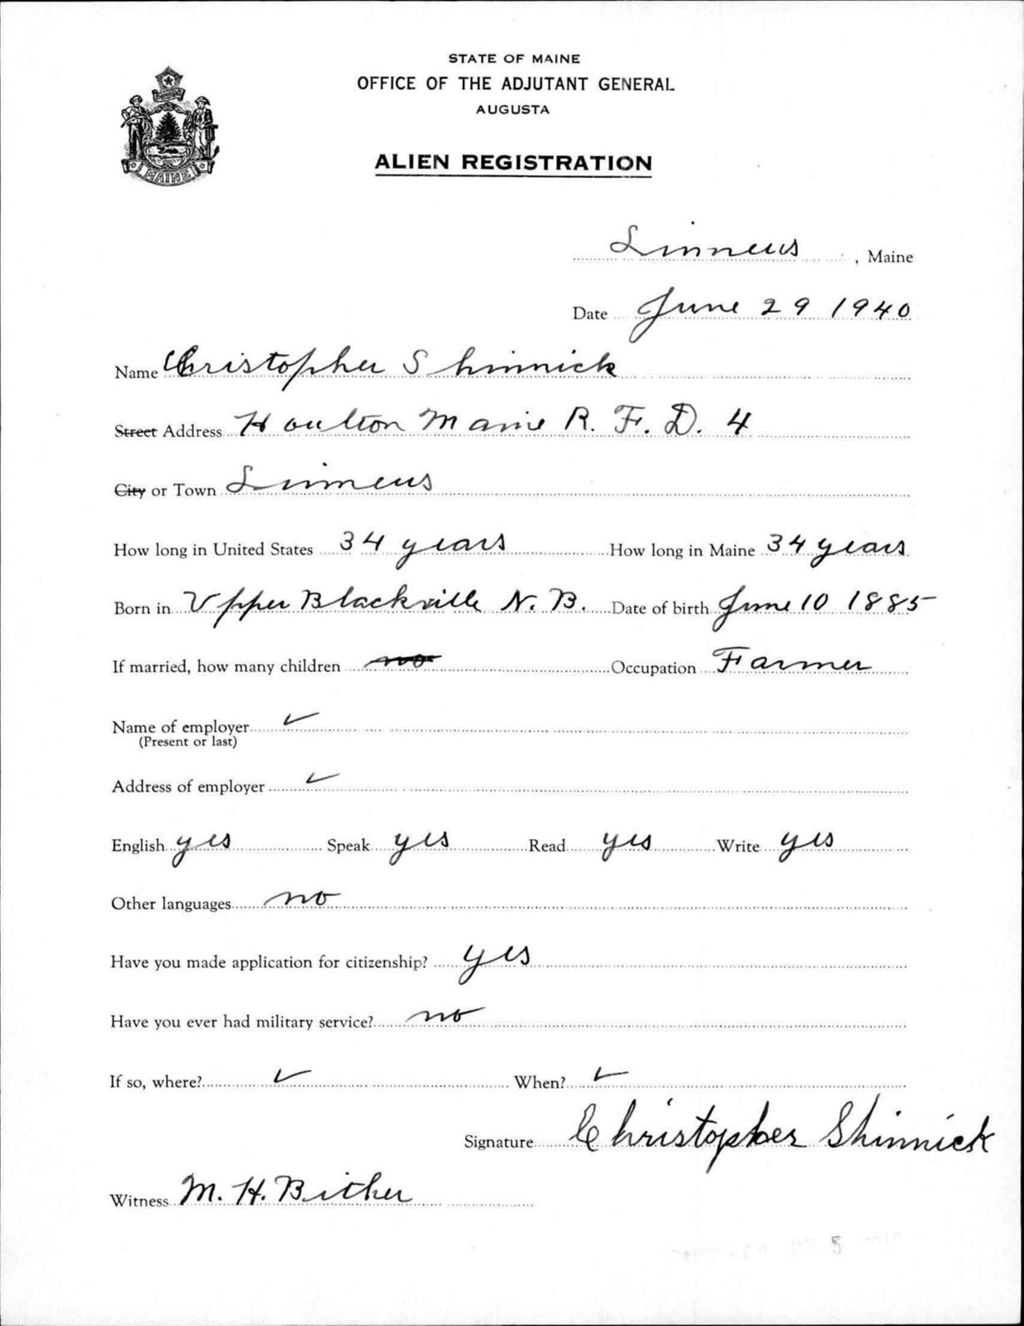 STATE OF MAINE
OFFICE OF THE ADJUTANT GENERAL
AUGUSTA
ALIEN REGISTRATION
MAINE
Linneus, Maine
Date June 29 1940
Name Christopher Shinnick
Street Address Houlton Maine R. F. D. 4
City or Town Linneus
How long in United States 34 years How long in Maine 34 years
Born in Upper Blackville N. B. Date of birth June 10 1885
If married, how many children no Occupation Farmer
Name of employer ✓
(Present or last)
Address of employer ✓
English yes Speak yes Read yes Write yes
Other languages no
Have you made application for citizenship? yes
Have you ever had military service? no
If so, where? ✓ When? ✓
Signature Christopher Shinnick
Witness M. H. Bither